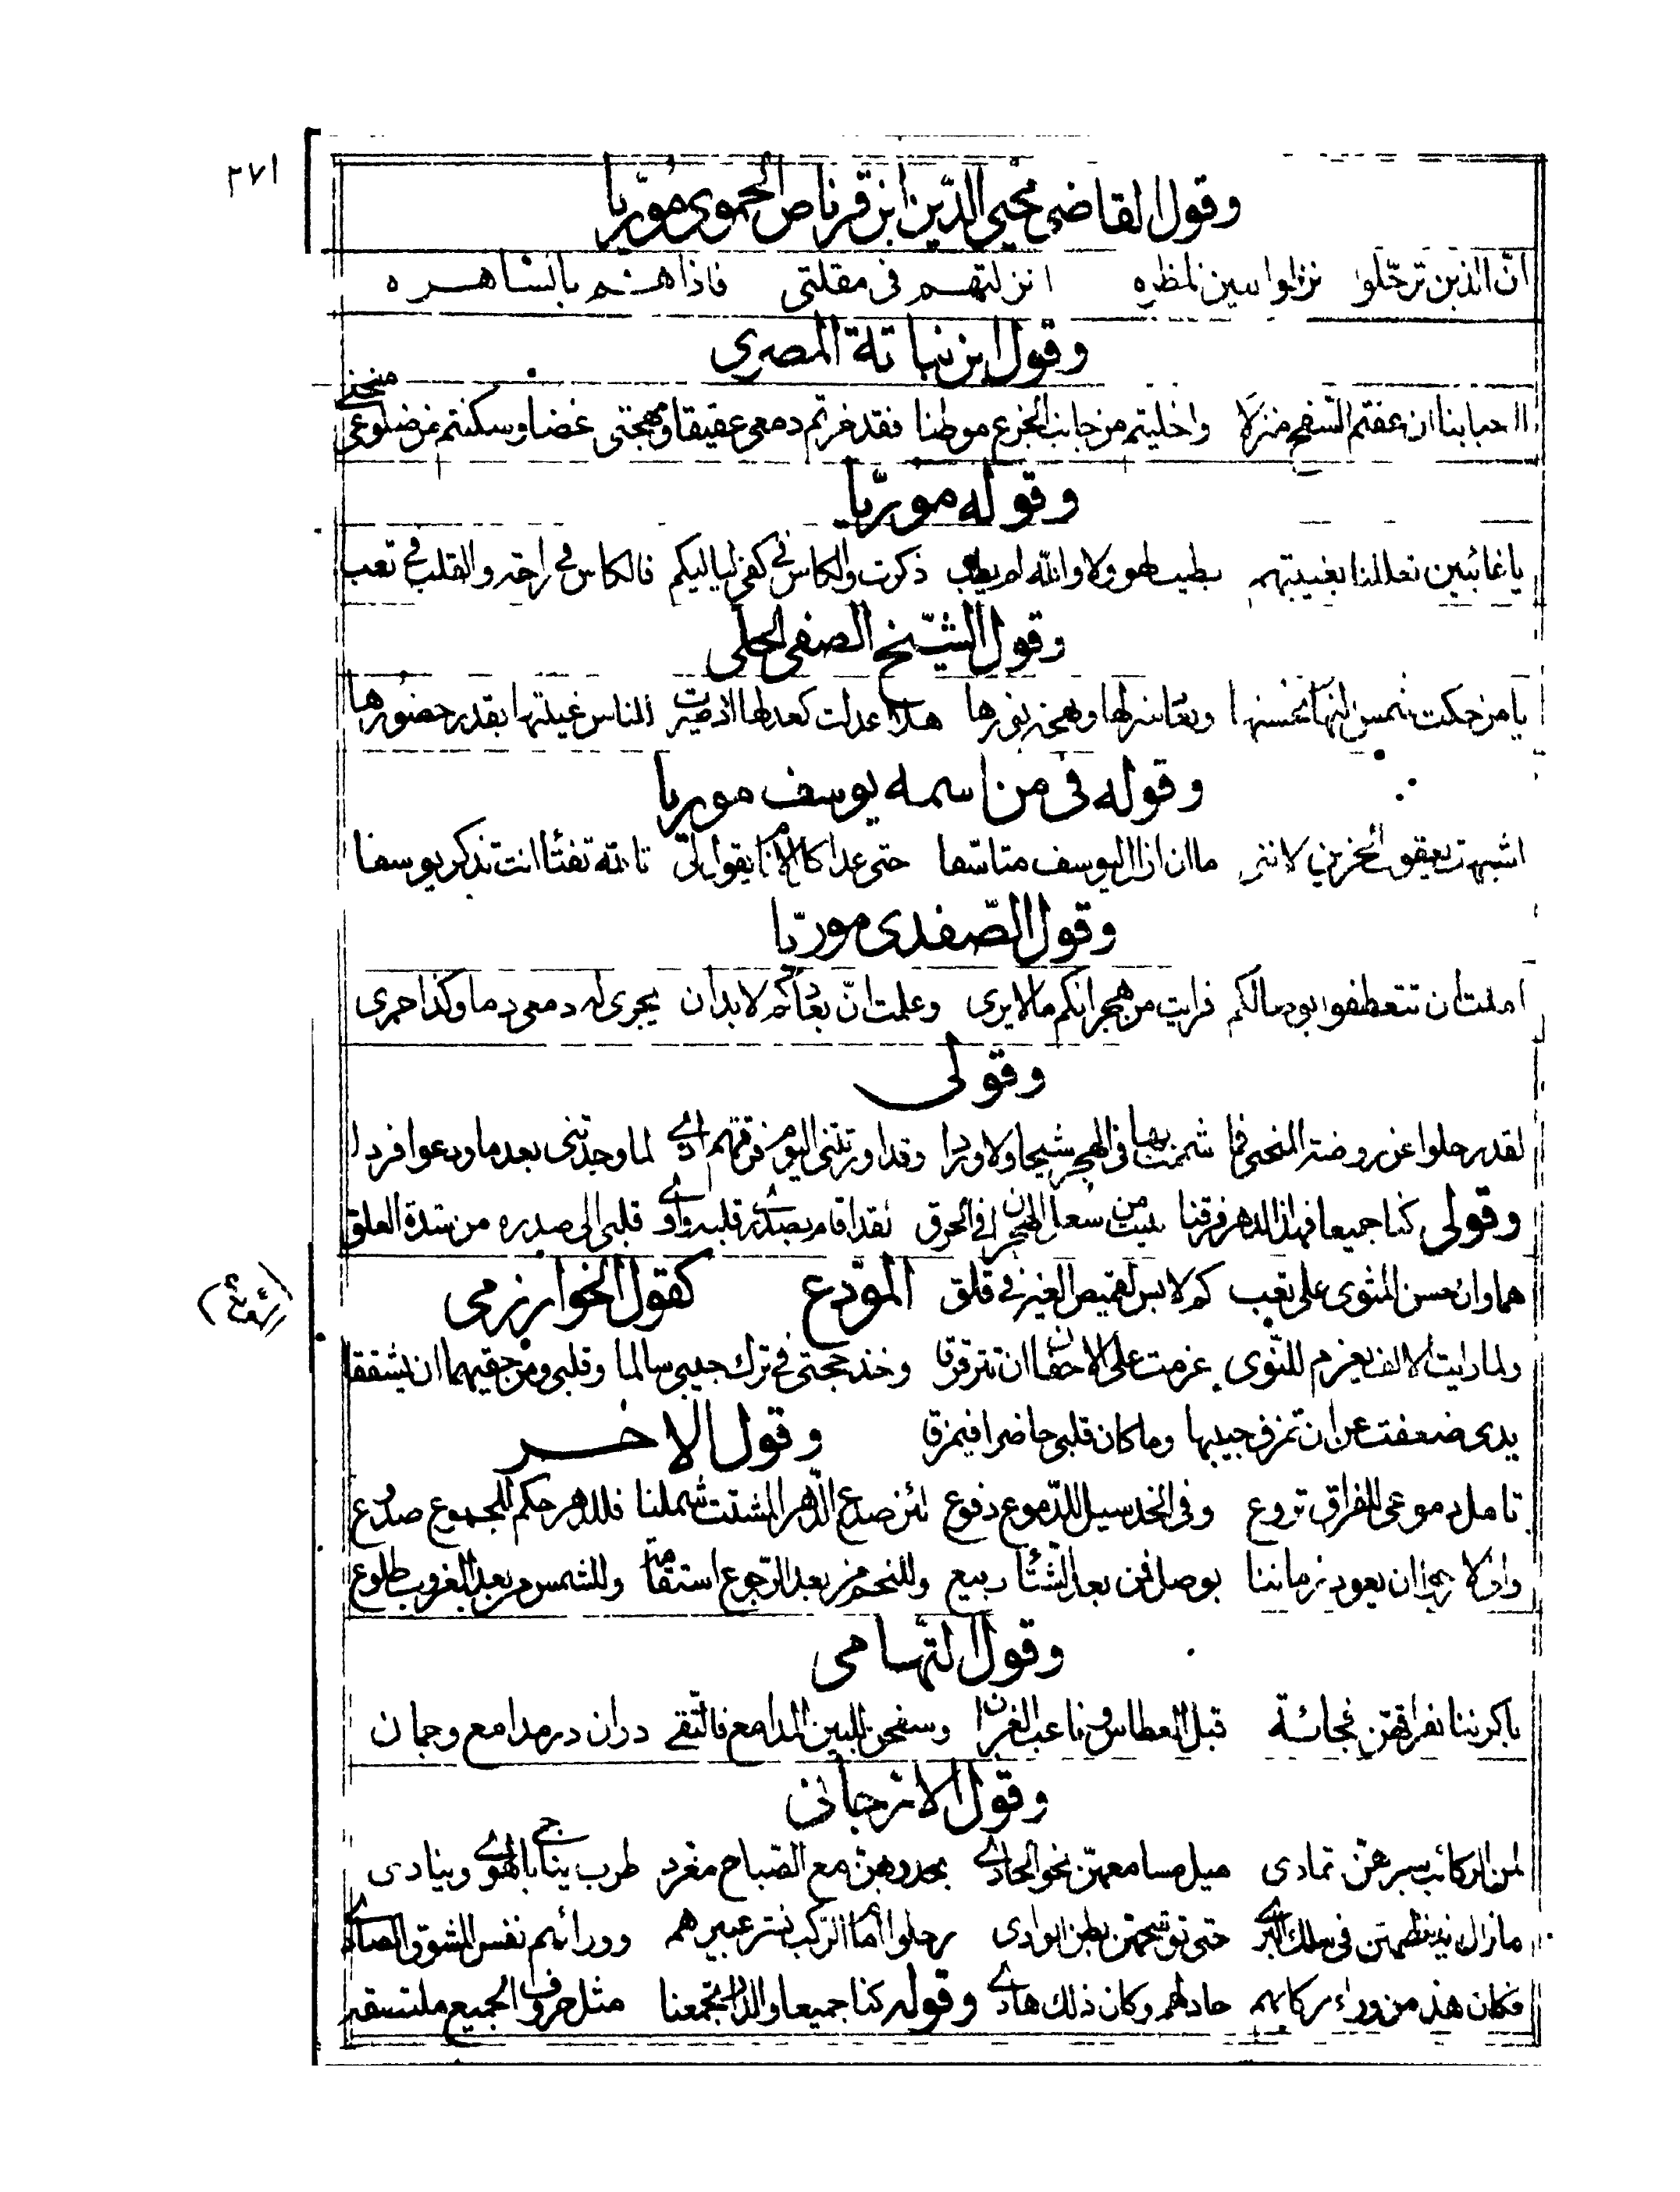 ٢٧١
وقول القاضي محيي الدّين ابن قرناص الحموي مُورّيا
انّ الذين ترحّلوا نزلوا بعين ناظره انزلتهم في مقلتي فاذا هم بالساهره
وقول ابن نباتة المصري
ااحبابنا ان عفتم السّفح منزلا واخليتم من جانب الجزع موطنا فقد حزتم دمعي عقيقا ومهجتي غضا وسكنتم من ضلوعي منحنى
وقوله مورّيا
يا غائبين تعللنا بغيبتهم بطيب لهو ولا والله لم يطب ذكرت والكاس في كفي لياليكم فالكاس في راحة والقلب في تعب
وقول الشيخ الصفي الحلي
يا من حكت شمس النهار بحسنها وبعاد منزلها وبهجة نورها هلا عدلت كعدلها اذ صيرت للناس غيبتها بقدر حضورها
وقوله في من اسمه يوسف موريا
اشبهت يعقوب الحزين لانني ما ان ازال ليوسف متاسفا حتى غدا كل الانام يقول لي تالله تفتأ انت تذكر يوسفا
وقول الصّفدي موريّا
املت ان تتعطفوا بوصالكم فرايت من هجرانكم ما لا يرى وعلمت انّ بعادكم لا بد ان يجري له دمعي دما وكذا جرى
وقولي
لقد رحلوا عن روضة المنحنى فما شممت بها في الهجر شيحا ولا وردا وقد اورثتني اليوم فرقتهم اذى لما وجدتني بعدما ودعوا فردا
وقولي كنا جميعا فهذا الدهر فرقنا من الهجران في الحرق قلبي الى صدره من شدة العلق
هما وان حسن المثوى على تعب كم لابس لقميص الغيز في قلق المودّع كقول الخوارزمي
ولما رايت الالف يعزم للنّوى عزمت على الاجفان ان تترقرقا وخذ حجتي في ترك جيبي سالما وقلبي ومن حقيهما ان يشققا
يدي ضعفت عن ان تمزق جيبها وما كان قلبي حاضرا فيمزقا وقول الاخر
تامل دموعي للفراق تروع وفي الخد سيل للدّموع دفوع لئن صدع الدّهر المشتت شملنا فللدهر حكم للجموع صدوع
واني لارجو ان يعود زماننا بوصل فمن بعد الشتاء ربيع وللنجم من بعد الرّجوع استقامة وللشمس من بعد الغروب طلوع
وقول التهامي
باكرننا بفراقهنّ فجائة قبل العطاس وناعب الغربان وسفحن للبين المدامع فالتقى درّان در مدامع وجمان
وقول الارجاني
لمن الركائب سيرهنّ تمادى ميل مسامعهنّ نحو الحادي يحدو بهنّ مع الصّباح مغرد طرب ينا جي بالهوى وينادي
ما زال ينظمهنّ في سلك السرى حتى توشحهنّ بطن الوادي رحلوا امام الركب نشر عبيرهم وورائهم نفس المشوق الصادي
فكان هذ من وراء ركابهم حاد لهم وكان ذلك هادي وقوله كنا جميعا والدار تجمعنا مثل حروف الجميع ملتصقه